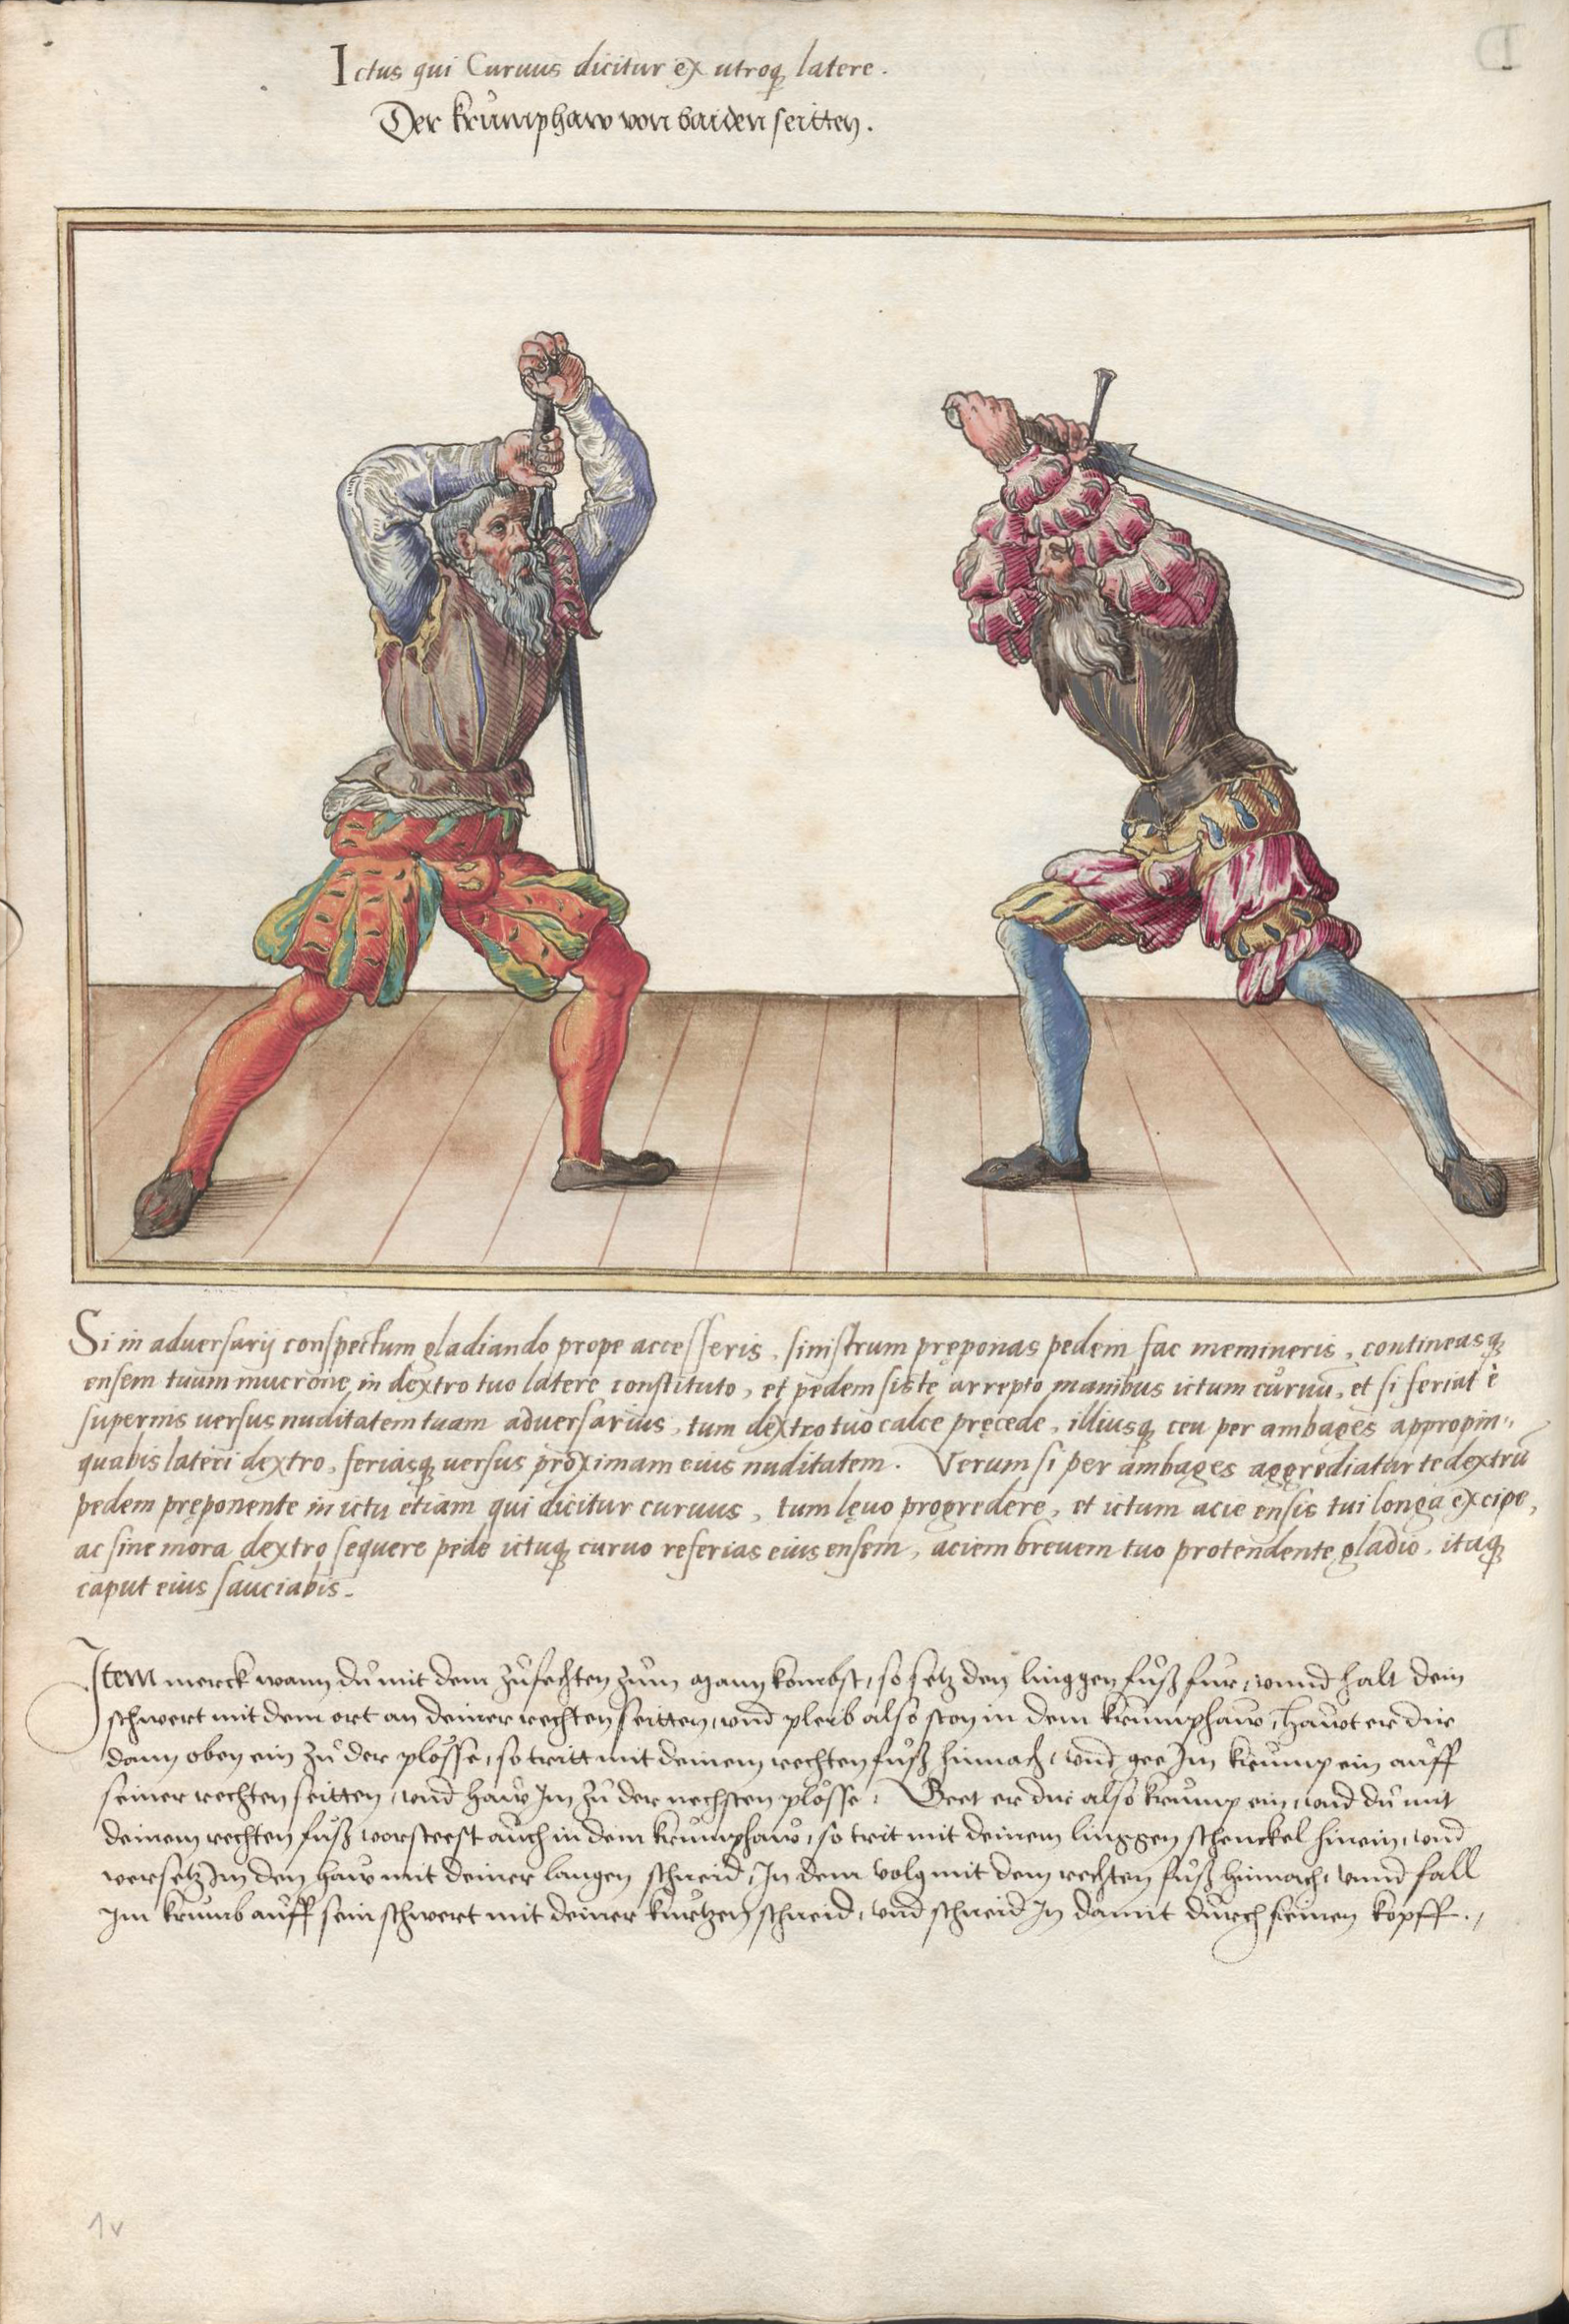 Ictus qui Curuus dicitur ex utroq̨ latere.
Der krůmphaw von baiden seitten.
2
Si in aduersarij conspectum gladiando prope accesseris, sinistrum pręponas pedem fac memineris, contineasq̨
ensem tuum mucrone in dextro tuo latere constituto, et pedem siste arrepto manibus ictum curuũ, et si feriat è
supernis uersus nuditatem tuam aduersarius, tum dextro tuo calce pręcede, illiusq̨ ceu per ambages appropin„
quabis lateri dextro, feriasq̨ uersus proximam eius nuditatem. Verum si per ambages aggrediatur te dextrũ
pedem pręponente in ictu etiam qui dicitur curuus, tum lęuo progredere, et ictum acie ensis tui longa excipe,
ac sine mora dextro sequere pede ictuq̨ curuo referias eius ensem, aciem breuem tuo protendente gladio, itaq̨
caput eius sauciabis.
Item merck wann dů mit dem zůfechten zům mann kombst, so setz den linggen fůß fur, vnnd halt dein
schwert mit dem ort an deiner rechten seitten, vnd pleib also ston in dem krůmphaw, hawt er dir
dann oben ein zů der plösse, so tritt mit deinem rechten fůß hinnach, vnd gee Im krůmp ein aůff
seiner rechten seitten, vnd haw Im zů der nechsten plösse, Geet er dir also krůmp ein, vnd dů mit
deinem rechten fůß vorsteest aůch in dem krůmphaw, so trit mit deinem linggen schenckel hinein, vnd
versetz Im den haw mit deiner langen schneid, In dem volg mit dem rechten fůß hinnach, vnnd fall
Im krůmb aůff sein schwert mit deiner kurtzen schneid, vnd schneid In damit důrch seinen kopff.,
1v